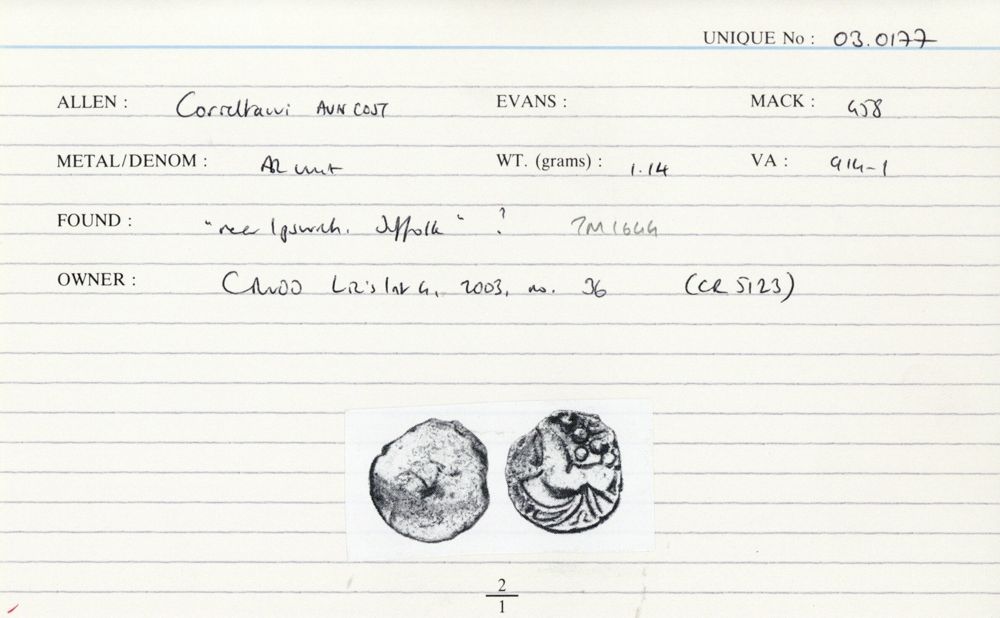 UNIQUE No : 03.0177
ALLEN : Corieltauvi AVN COST EVANS : MACK : 458
METAL/DENOM : AR unit WT. (grams) : 1.14 VA : 914-1
FOUND : "near Ipswich. Suffolk" ? TM1644
OWNER : 2003, no. 36 (CR 5123)
2
1